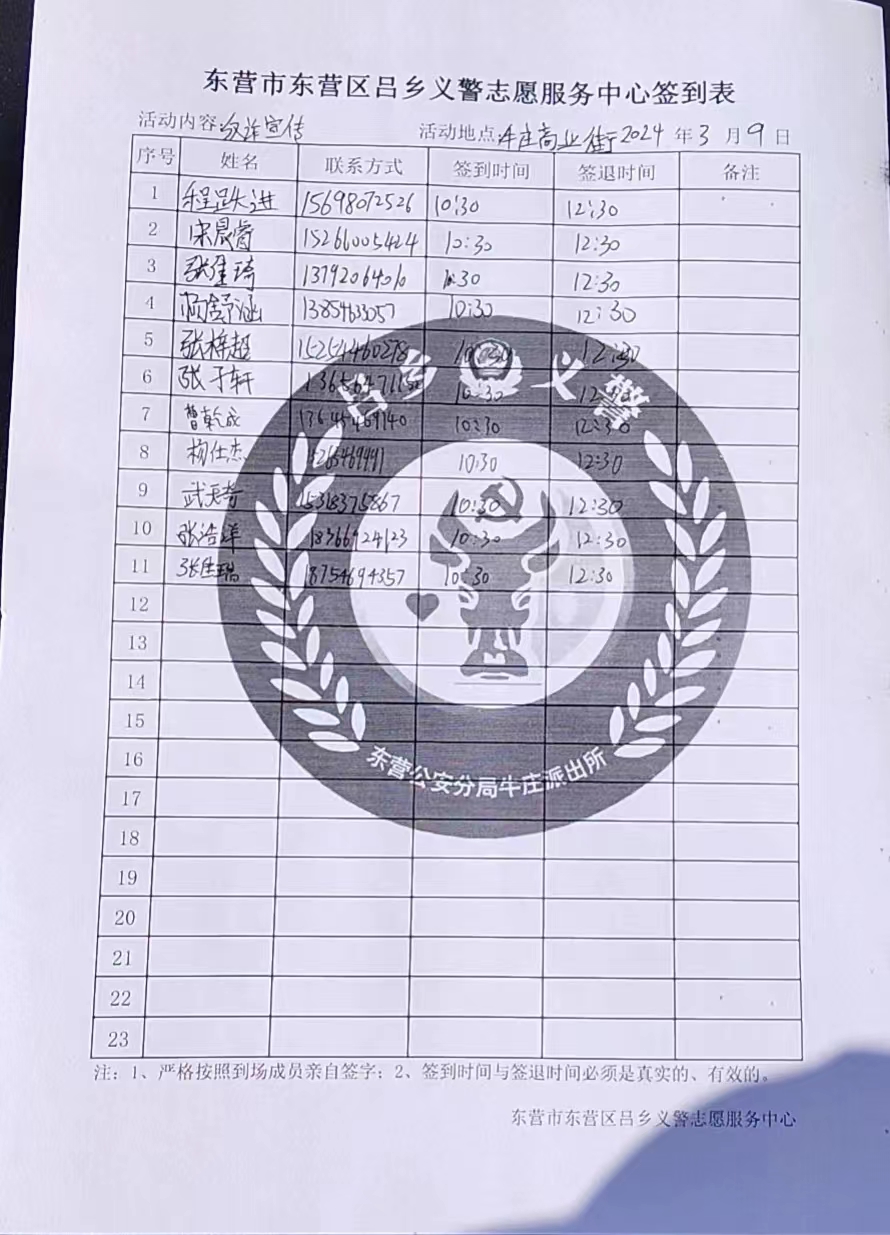 东营市东营区吕乡义警志愿服务中心签到表
活动内容:反诈宣传 活动地点:牛庄商业街 2024 年 3 月 9 日
序号 姓名 联系方式 签到时间 签退时间 备注
1 程跃进 15698072526 10:30 12:30
2 宋晨睿 15266005424 10:30 12:30
3 张佳琦 1379206 10:30 12:30
4 顾舒涵 1385463057 10:30 12:30
5 张梓超 15254460278 10:30 12:30
6 张子轩 10:30 12:30
7 曹乾成 13645469140 10:30 12:30
8 杨仕杰 10:30 12:30
9 武天奇 15318375867 10:30 12:30
10 张浩洋 18366924123 10:30 12:30
11 张佳瑞 18754694357 10:30 12:30
12
13
14
15
16
17
18
19
20
21
22
23
吕乡义警
东营公安分局牛庄派出所
注:1、严格按照到场成员亲自签字;2、签到时间与签退时间必须是真实的、有效的。
东营市东营区吕乡义警志愿服务中心